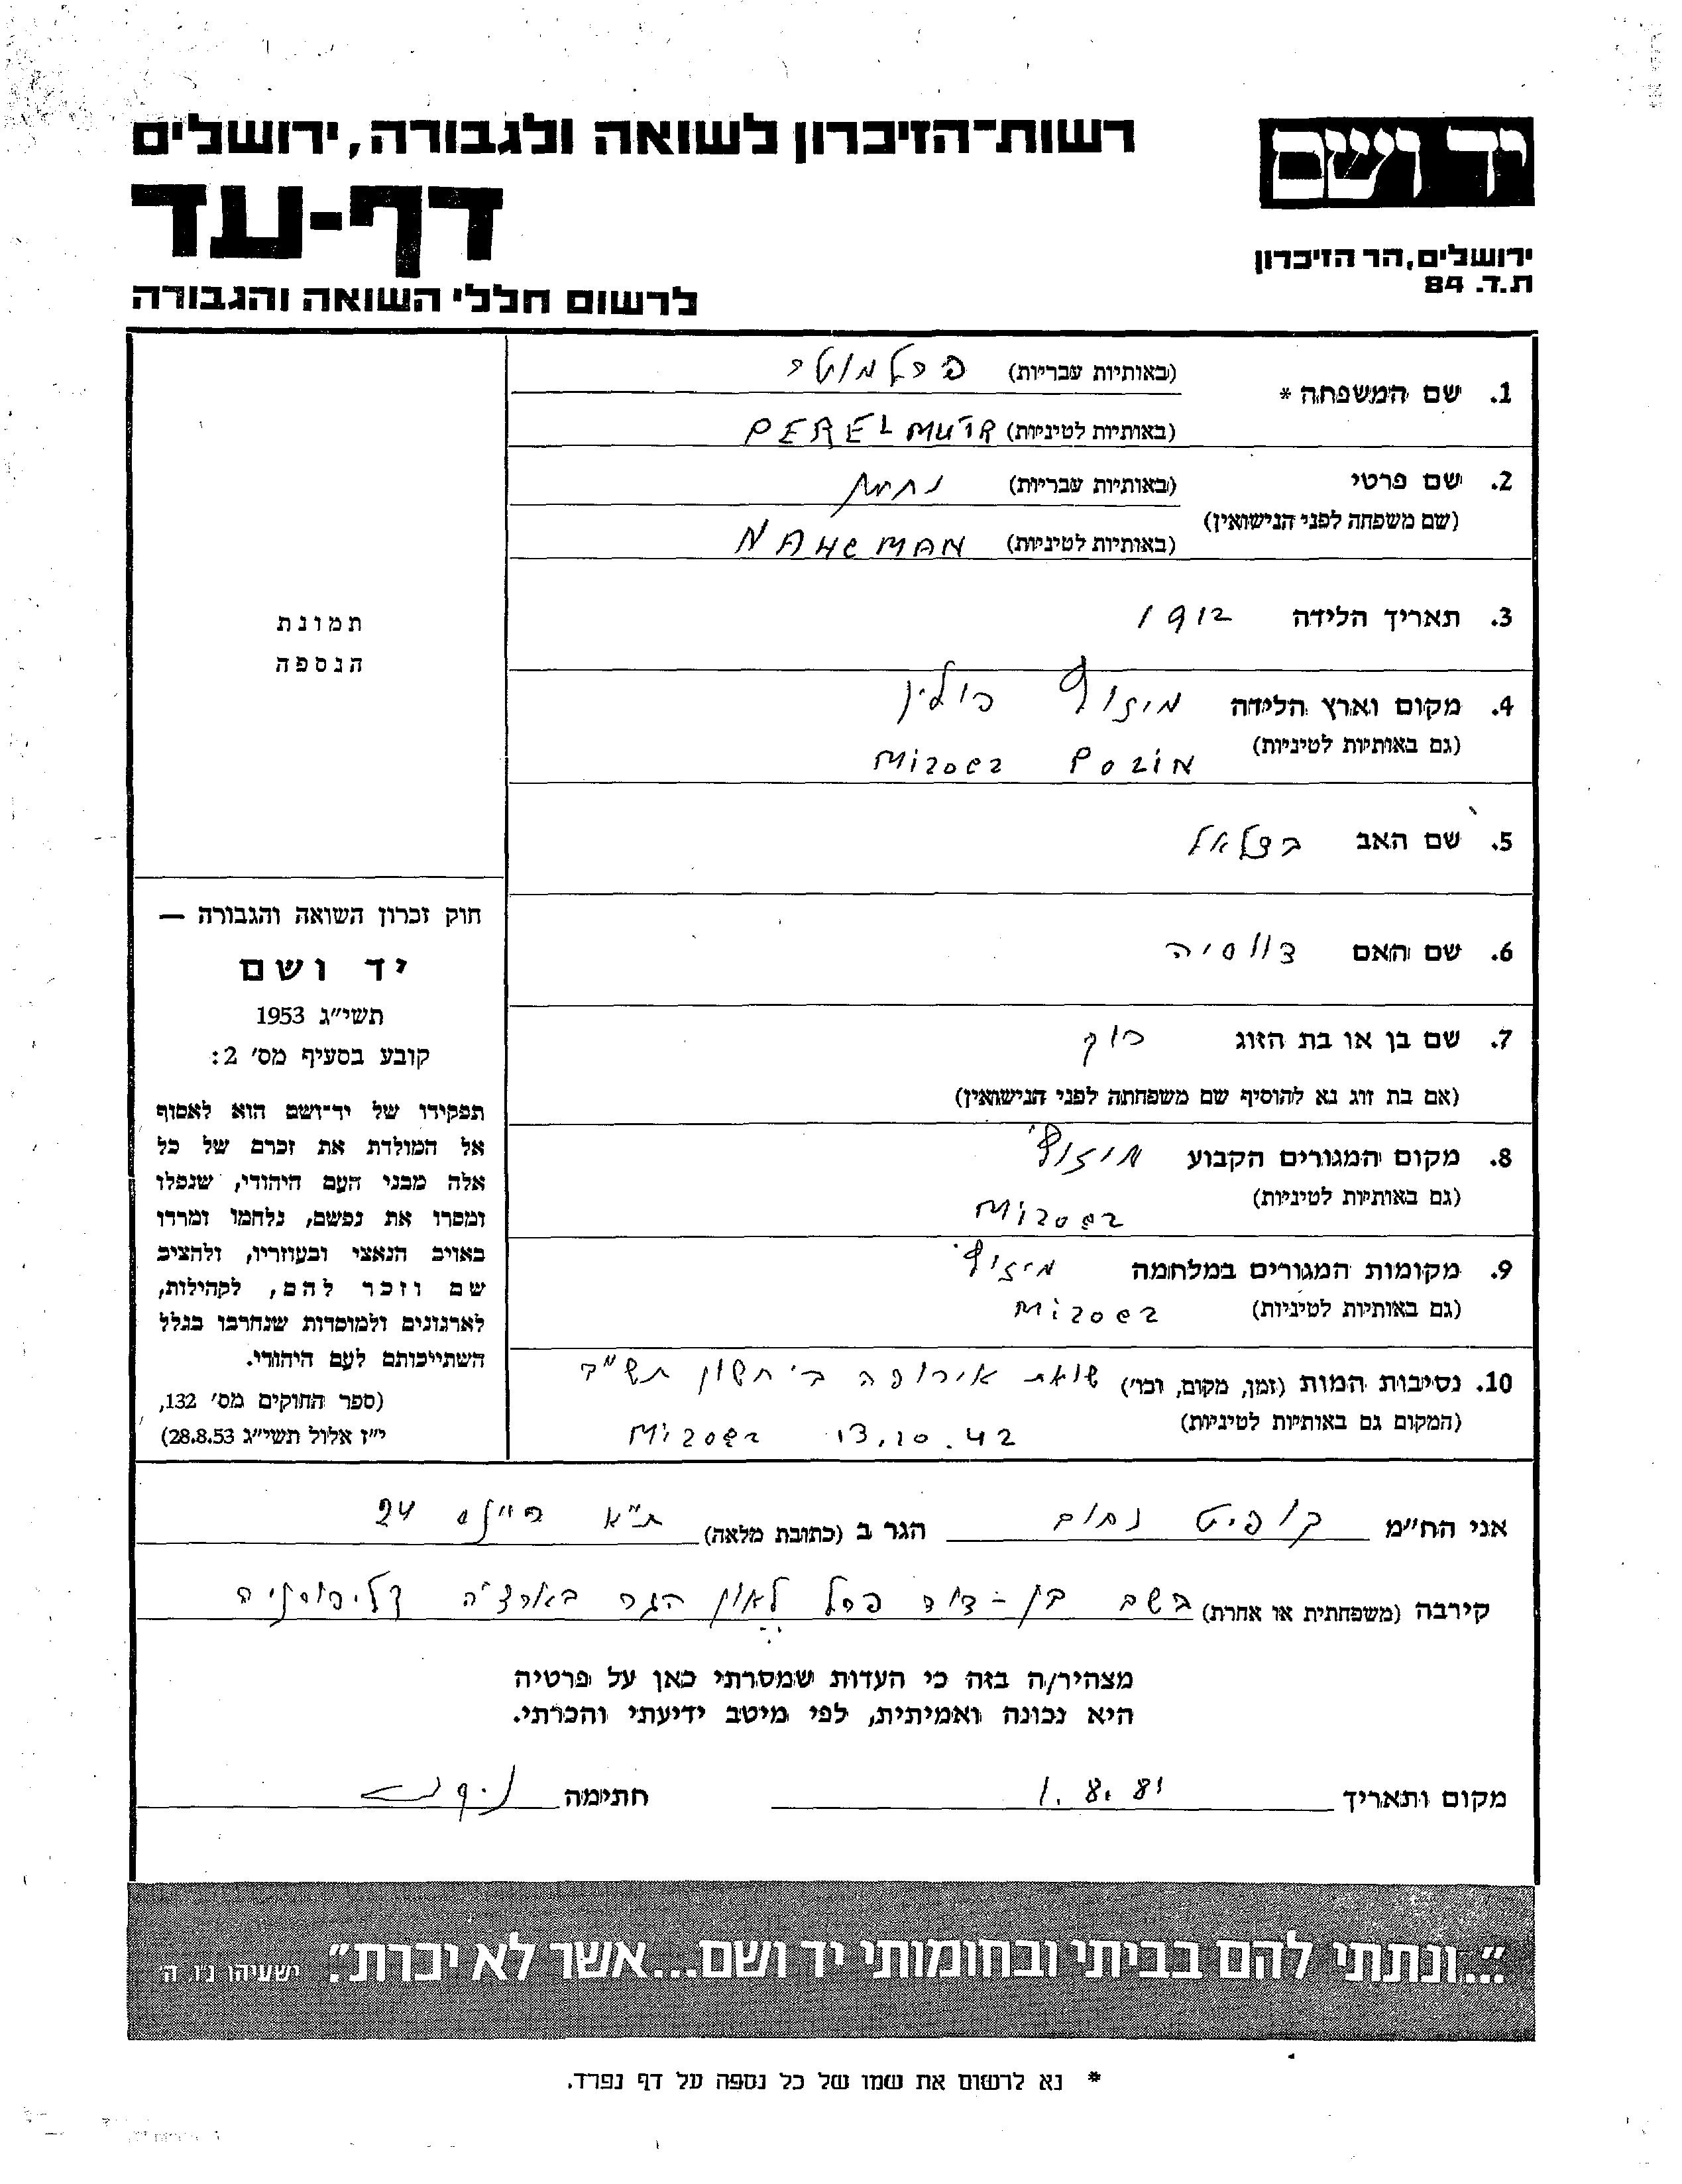 רשות־הזיכרון לשואה ולגבורה, ירושלים
יד ושם
דף-עד
ירושלים, הר הזיכרון
ת.ד. 84
לרשום חללי השואה והגבורה
1. שם המשפחה *
(באותיות עבריות) פרלמוטר
(באותיות לטיניות) PERELMUTR
2. שם פרטי
(באותיות עבריות) נחמן
(שם משפחה לפני הנישואין)
(באותיות לטיניות) NAHCMAN
3. תאריך הלידה 1912
4. מקום וארץ הלידה מיזוץ' פולין
(גם באותיות לטיניות) Mizocz Polin
5. שם האב בצלאל
6. שם האם צווסיה
7. שם בן או בת הזוג
(אם בת זוג נא להוסיף שם משפחתה לפני הנישואין)
8. מקום המגורים הקבוע מיזוץ'
(גם באותיות לטיניות) Mizocz
9. מקומות המגורים במלחמה מיזוץ'
(גם באותיות לטיניות) Mizocz
10. נסיבות המות (זמן, מקום, וכו') שואת אירופה ב' חשון תש"ב
(המקום גם באותיות לטיניות) 13.10.42 Mizocz
תמונת
הנספה
חוק זכרון השואה והגבורה —
יד ושם
תשי"ג 1953
קובע בסעיף מס' 2:
תפקידו של יד־ושם הוא לאסוף
אל המולדת את זכרם של כל
אלה מבני העם היהודי, שנפלו
ומסרו את נפשם, נלחמו ומרדו
באויב הנאצי ובעוזריו, ולהציב
שם וזכר להם, לקהילות,
לארגונים ולמוסדות שנחרבו בגלל
השתייכותם לעם היהודי.
(ספר החוקים מס' 132,
י"ז אלול תשי"ג 28.8.53)
אני הח"מ קופיט נחום הגר ב (כתובת מלאה) ת"א 24
קירבה (משפחתית או אחרת) בשם בן-דוד פרל לאון הגר בארצ"ה קליפורניה
מצהיר/ה בזה כי העדות שמסרתי כאן על פרטיה
היא נכונה ואמיתית, לפי מיטב ידיעתי והכרתי.
מקום ותאריך 1.8.81 חתימה
"...ונתתי להם בביתי ובחומותי יד ושם...אשר לא יכרת". ישעיהו נ"ו, ה'
* נא לרשום את שמו של כל נספה על דף נפרד.